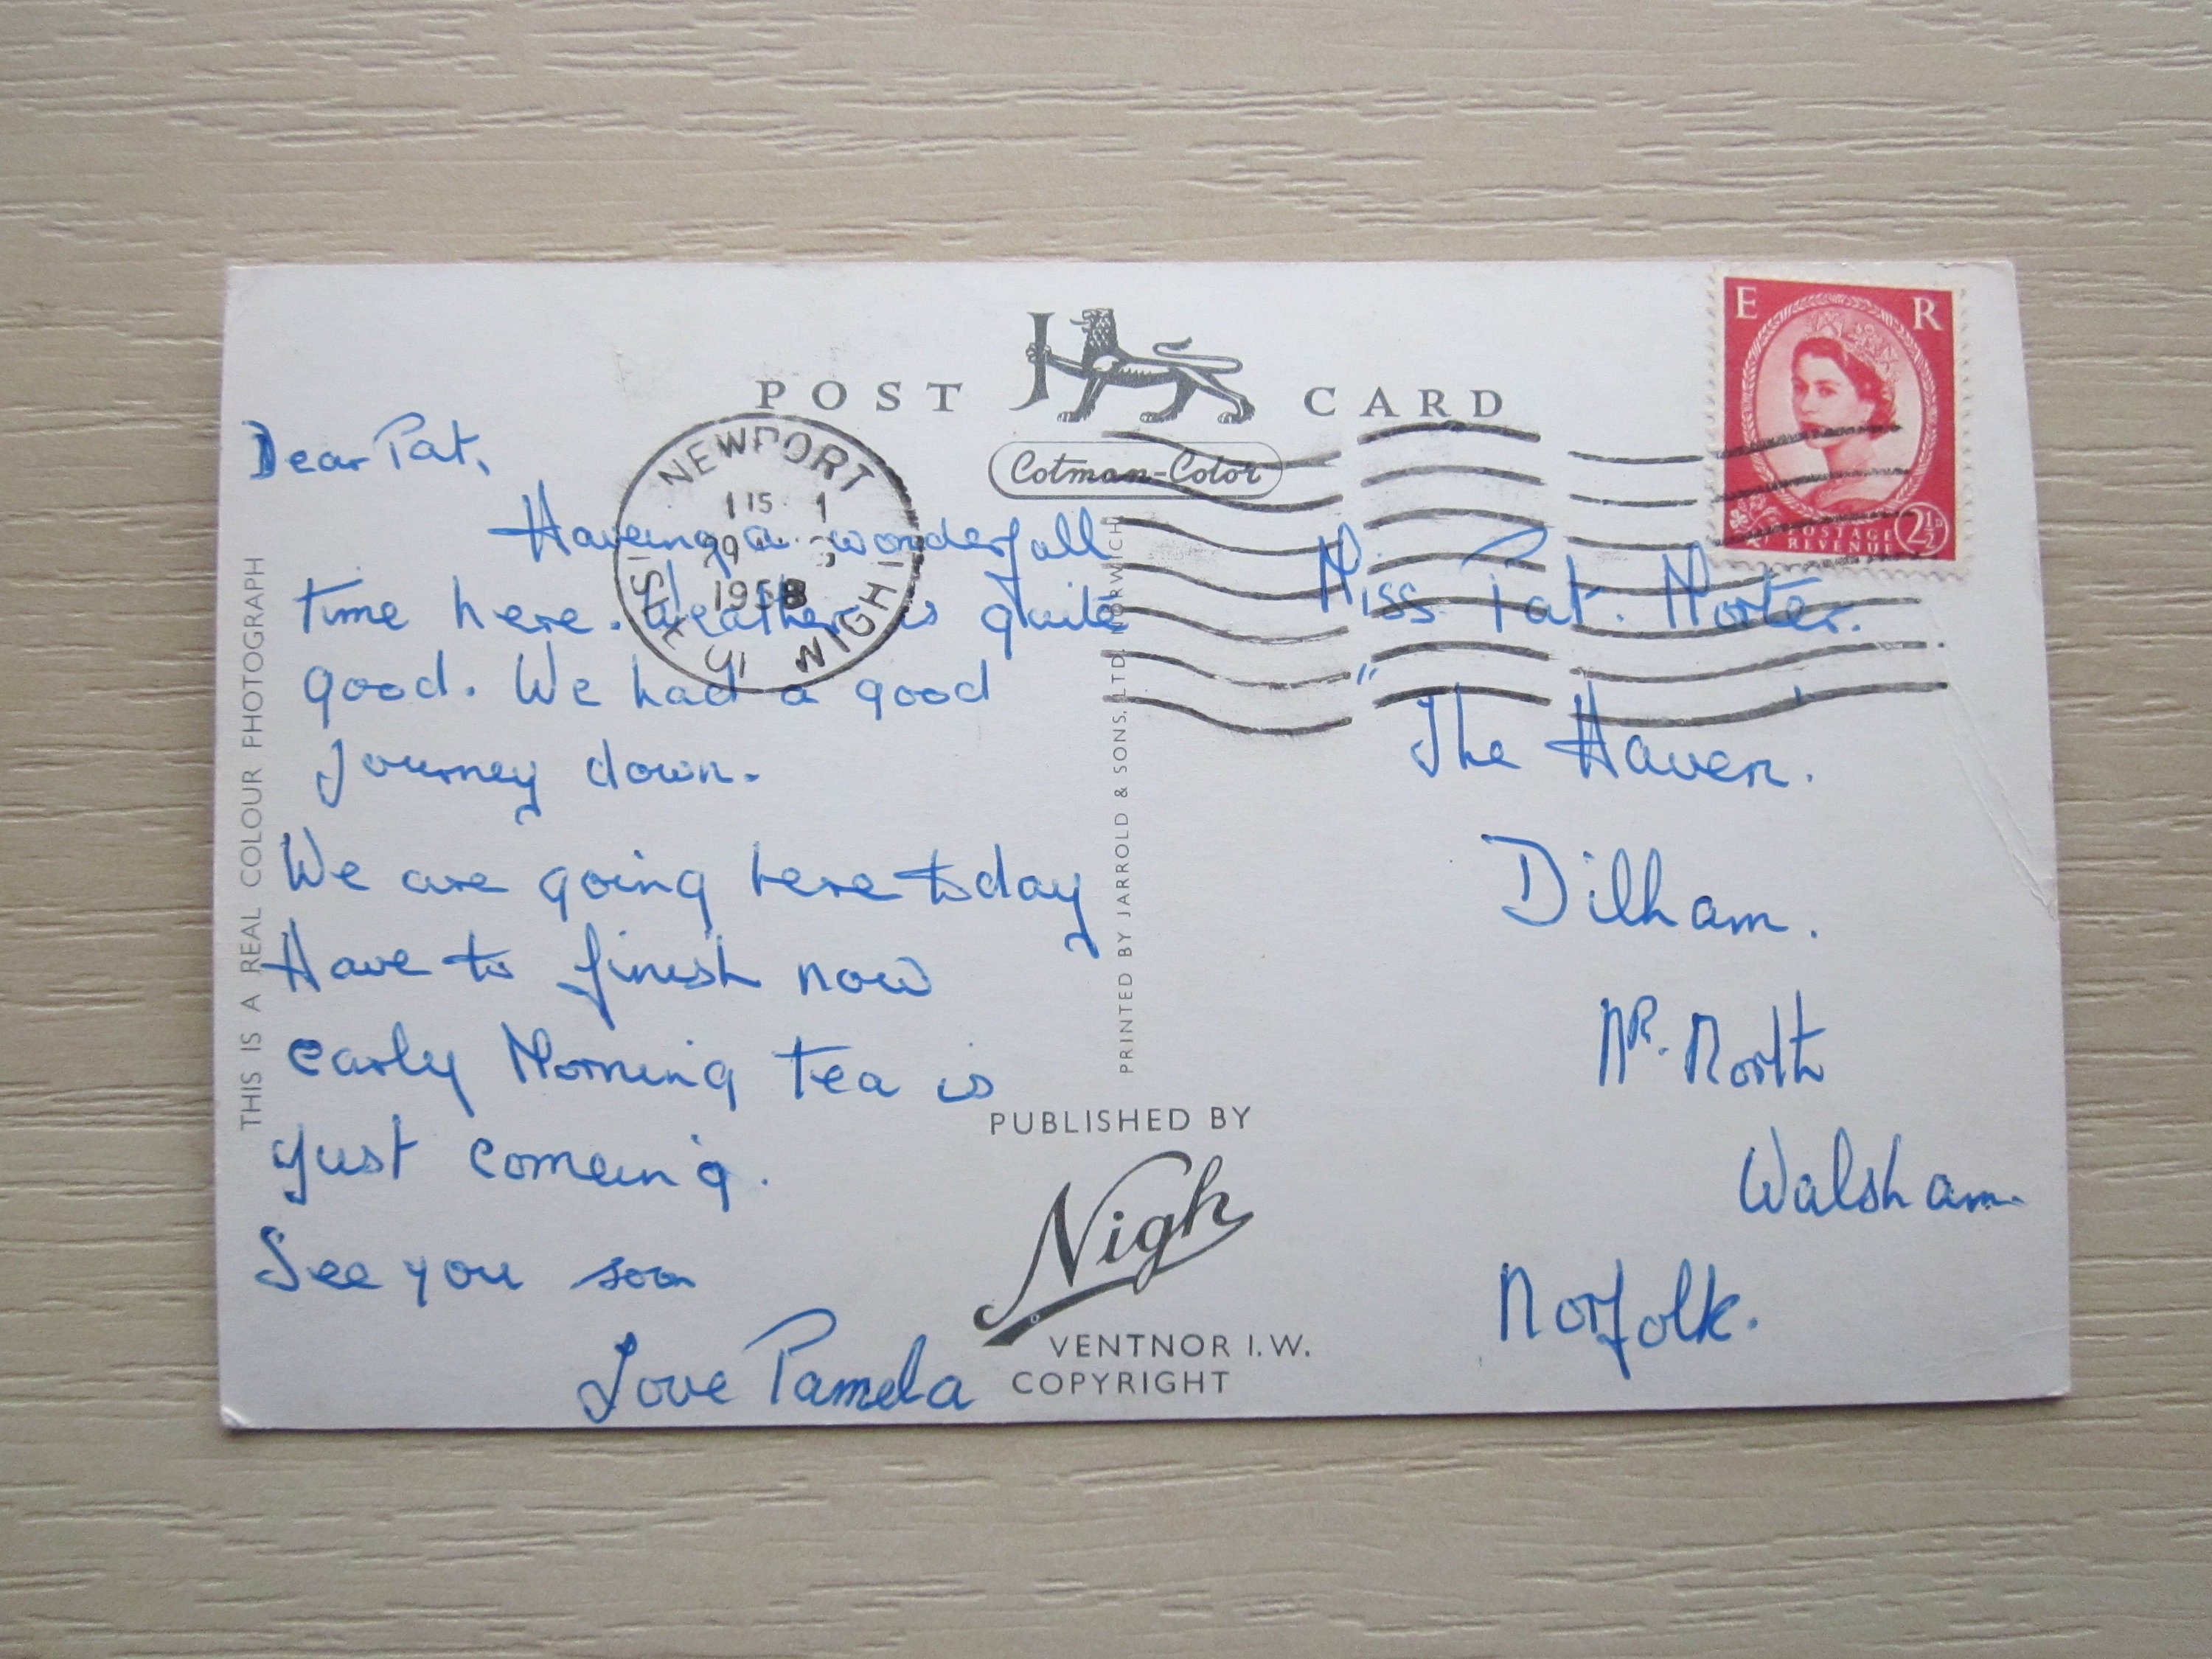 POST CARD
Cotman-Color
E R
POSTAGE
REVENUE
2½D
NEWPORT
ISLE OF WIGHT
1 15
1958
THIS IS A REAL COLOUR PHOTOGRAPH
Dear Pat,
Haveing a wonderfull
time here. Weather is quite
good. We had a good
journey down.
We are going here today
Have to finish now
early Morning tea is
just comeing.
See you soon
Love Pamela
PRINTED BY JARROLD & SONS, LTD. NORWICH
PUBLISHED BY
Nigh
VENTNOR I.W.
COPYRIGHT
Miss. Pat.
"The Haven.
Dilham.
NR. North
Walsham
Norfolk.